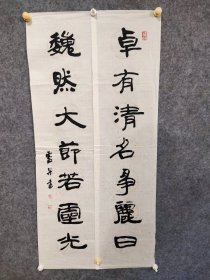 卓有清名争麗日
巍然大節若靈光